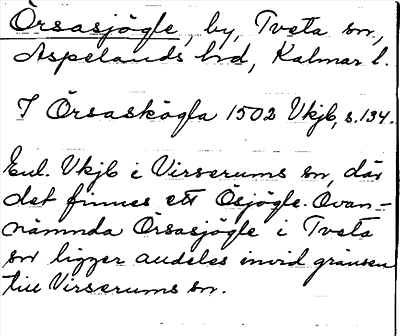 Örsasjögle, by, Tveta sn,
Aspelands hd, Kalmar l.
I Örsaskögla 1502 Vkjb, s. 134.
Enl. Vkjb i Virserums sn, där
det finnes ett Ösjögle. Ovan-
nämnda Örsasjögle i Tveta
sn ligger alldeles invid gränsen
till Virserums sn.